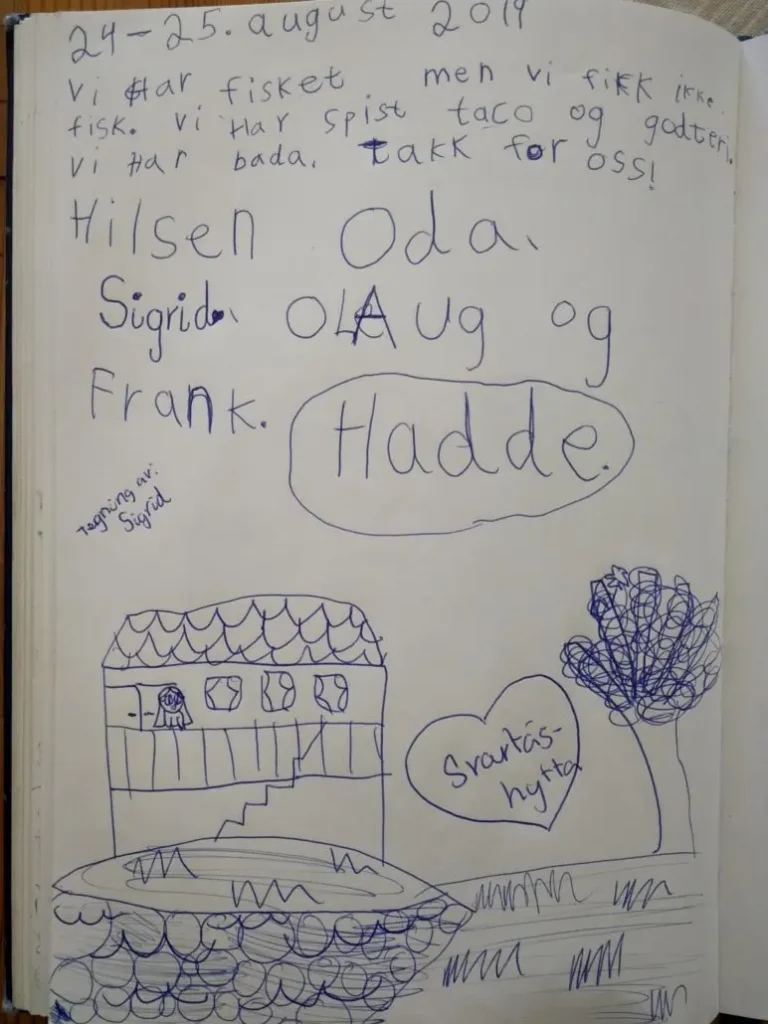 24-25. august 2019
Vi Har fisket men vi fikk ikke
fisk. Vi Har spist taco og godteri.
Vi Har bada. takk for oss!
Hilsen Oda.
Sigrid. OLAug og
Frank. Hadde.
Tegning av:
Sigrid
Svartås-
hytta